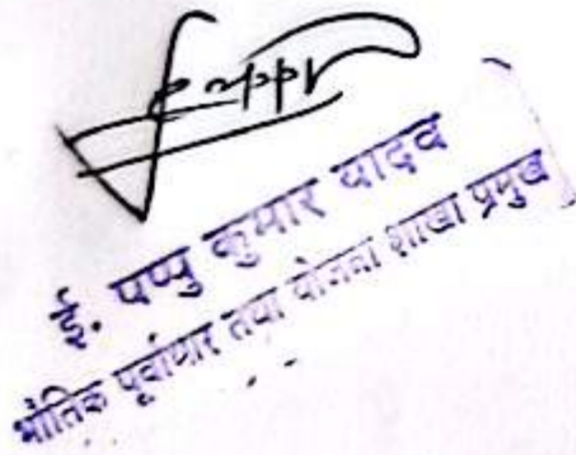 ई. पप्पु कुमार यादव
भौतिक पूर्वाधार तथा योजना शाखा प्रमुख